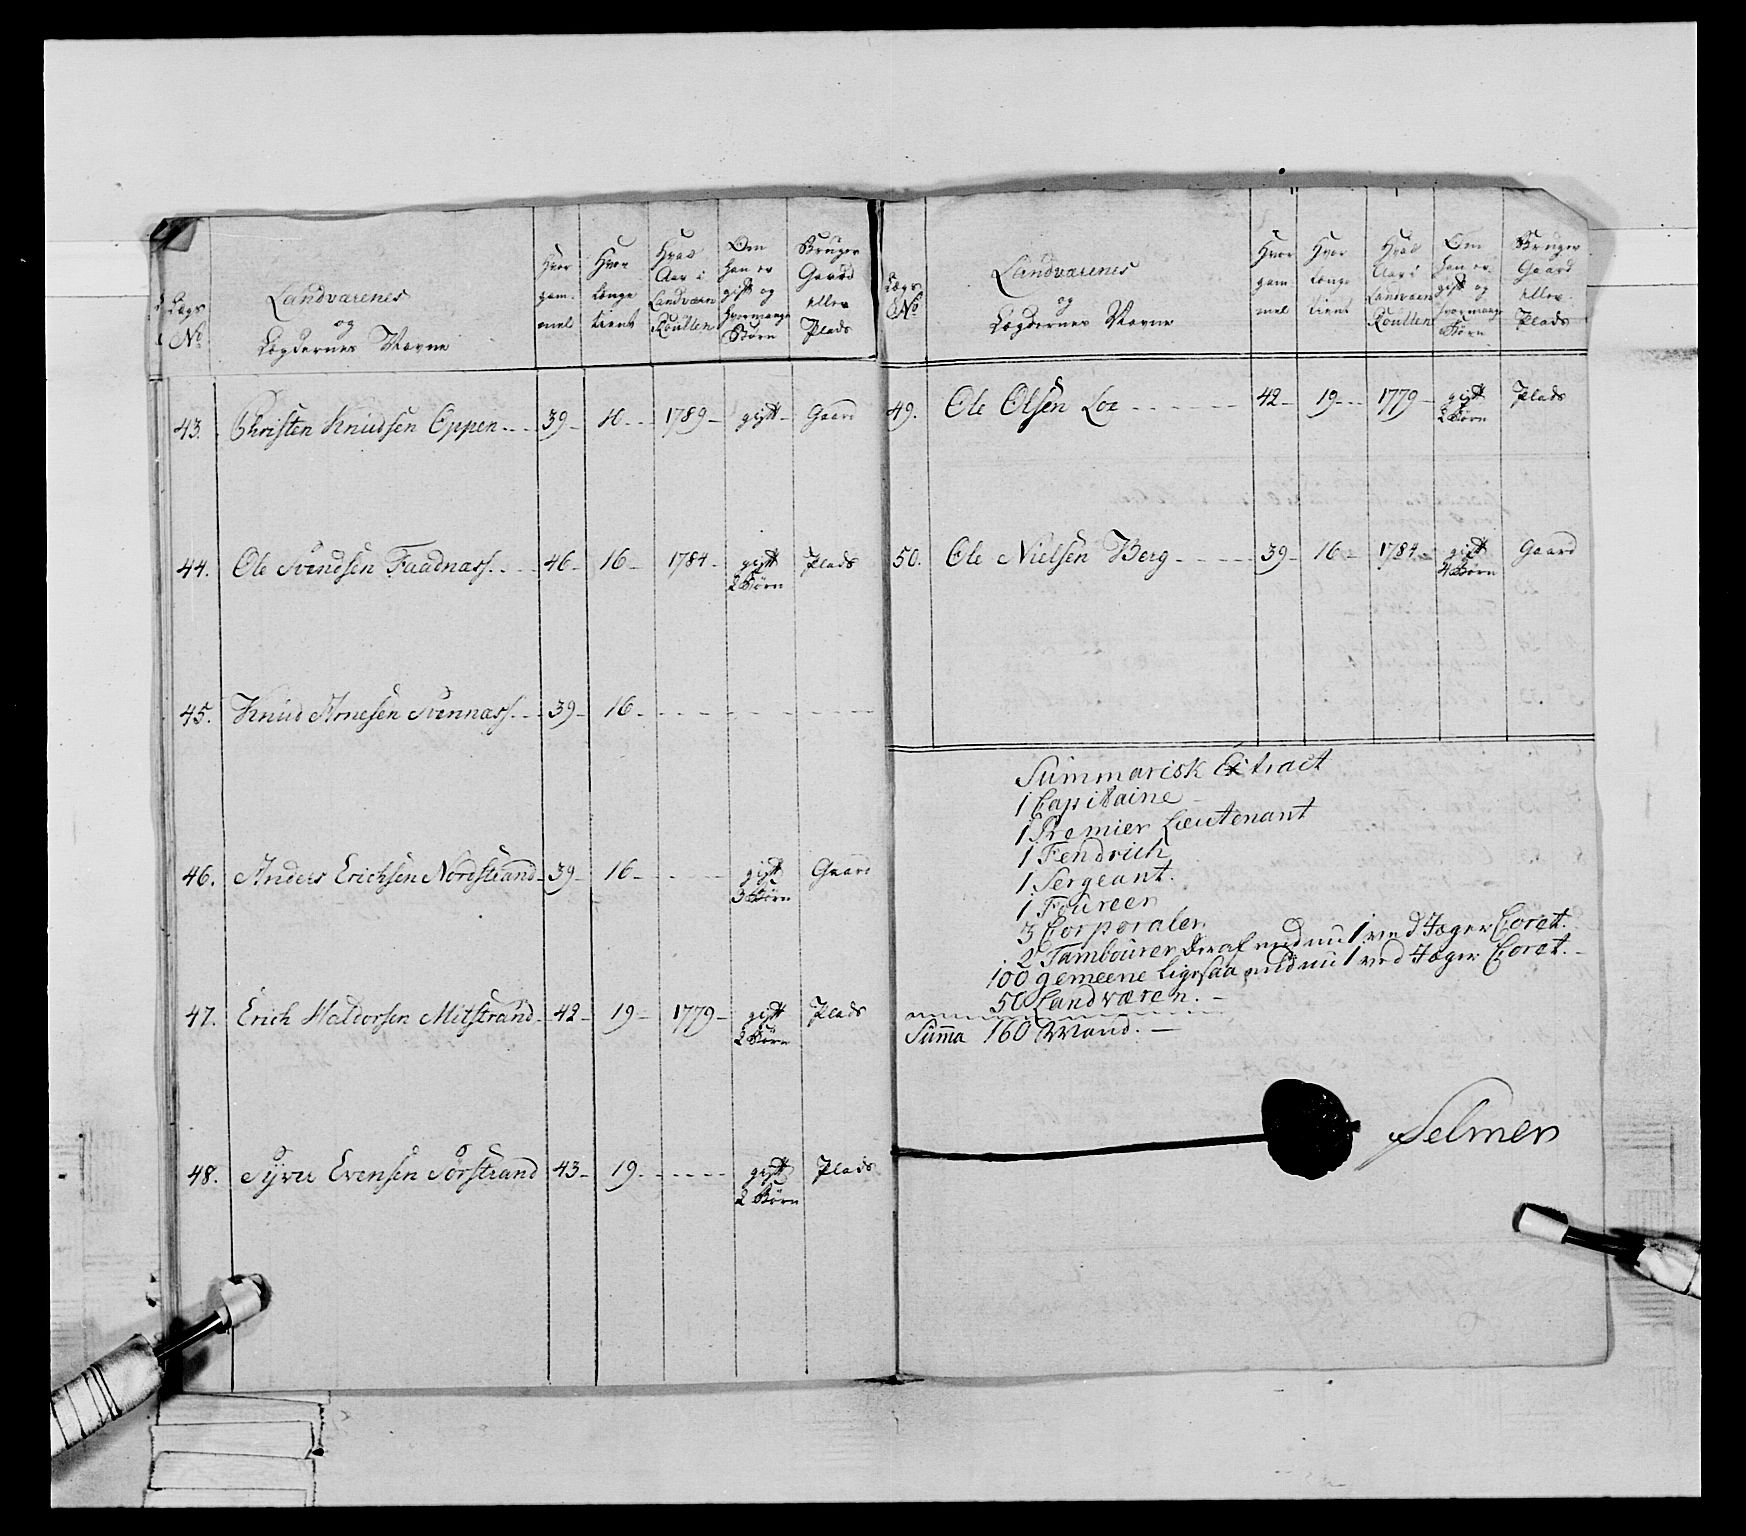 Lægs No
Landværenes og Lægdernes Navne
Hvor gammel
Hvor længe tient
Hvad Aar i Landværn Roullen
Om han er gift og hvormange Börn
Bruger Gaard eller Plads
43. Christen Knudsen Oppen 39 1789 gift Gaard
44. Ole Svendsen Faadnass 46 16 1784 gift 2 Börn Plads
45. Knud Arnesen Svennass 39 16
46. Anders Erichsen Nordstrand 39 16 gift 3 Börn Gaard
47. Erich Haldorsen Mitstrand 42 19 1779 gift 2 Börn Plads
48. Syver Evensen Sörstrand 43 19 gift 2 Börn Plads
Lægs No
Landværenes og Lægdernes Navne
Hvor gammel
Hvor længe tient
Hvad Aar i Landværn Roullen
Om han er gift og hvormange Börn
Bruger Gaard eller Plads
49. Ole Olsen Loe 42 19 1779 gift 2 Börn Plads
50. Ole Nielsen Berg 39 16 1784 gift 4 Börn Gaard
Summarisk Extract
1 Capitaine
1 Premier Lieutenant
1 Fendrich
1 Sergeant.
1 Foureer
3 Corporaler
2 Tambourer deraf endnu 1 ved Jæger Coret.
100 gemeene ligesaa endnu 1 ved Jæger Coret.
50 Landværen.
Summa 160 Mand.
Selmer